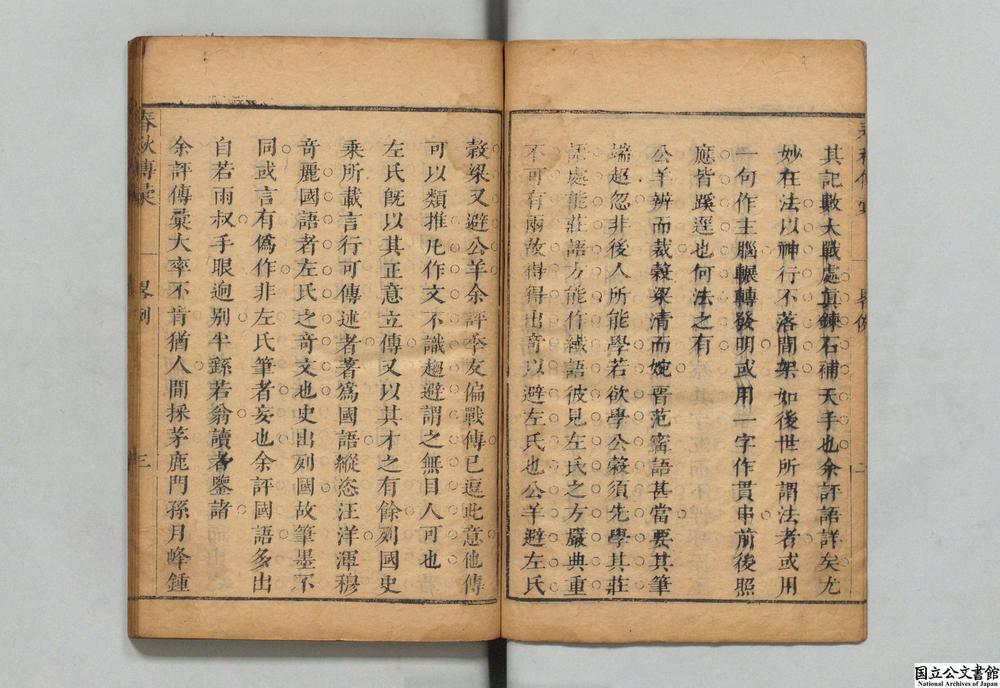 其記數大戰處眞鍊石補天手也余評語詳矣尤
妙在法以神行不落間架如後世所謂法者或用
一句作主腦輾轉發明或用一字作貫串前後照
應皆蹊逕也何法之有
公羊辨而裁穀梁清而婉晋范甯語甚當要其筆
端超忽非後人所能學若欲學公穀須先學其莊
語處能莊語方能作諔語彼見左氏之方嚴典重
不可有兩故得得出竒以避左氏也公羊避左氏
穀梁又避公羊余評季友偏戰傳已逗此意他傳
可以類推凡作文不識趨避謂之無目人可也
左氏旣以其正意立傳又以其才之有餘列國史
乘所載言行可傳述者著爲國語縱恣汪洋潭穆
竒麗國語者左氏之竒文也史出列國故筆墨不
同或言有僞作非左氏筆者妄也余評國語多出
自若雨叔手眼逈别半繇若翁讀者鑒諸
余評傳彙大率不肯猶人間採茅鹿門孫月峰鍾
春秋傳彙
畧例
三
二
国立公文書館
National Archives of Japan